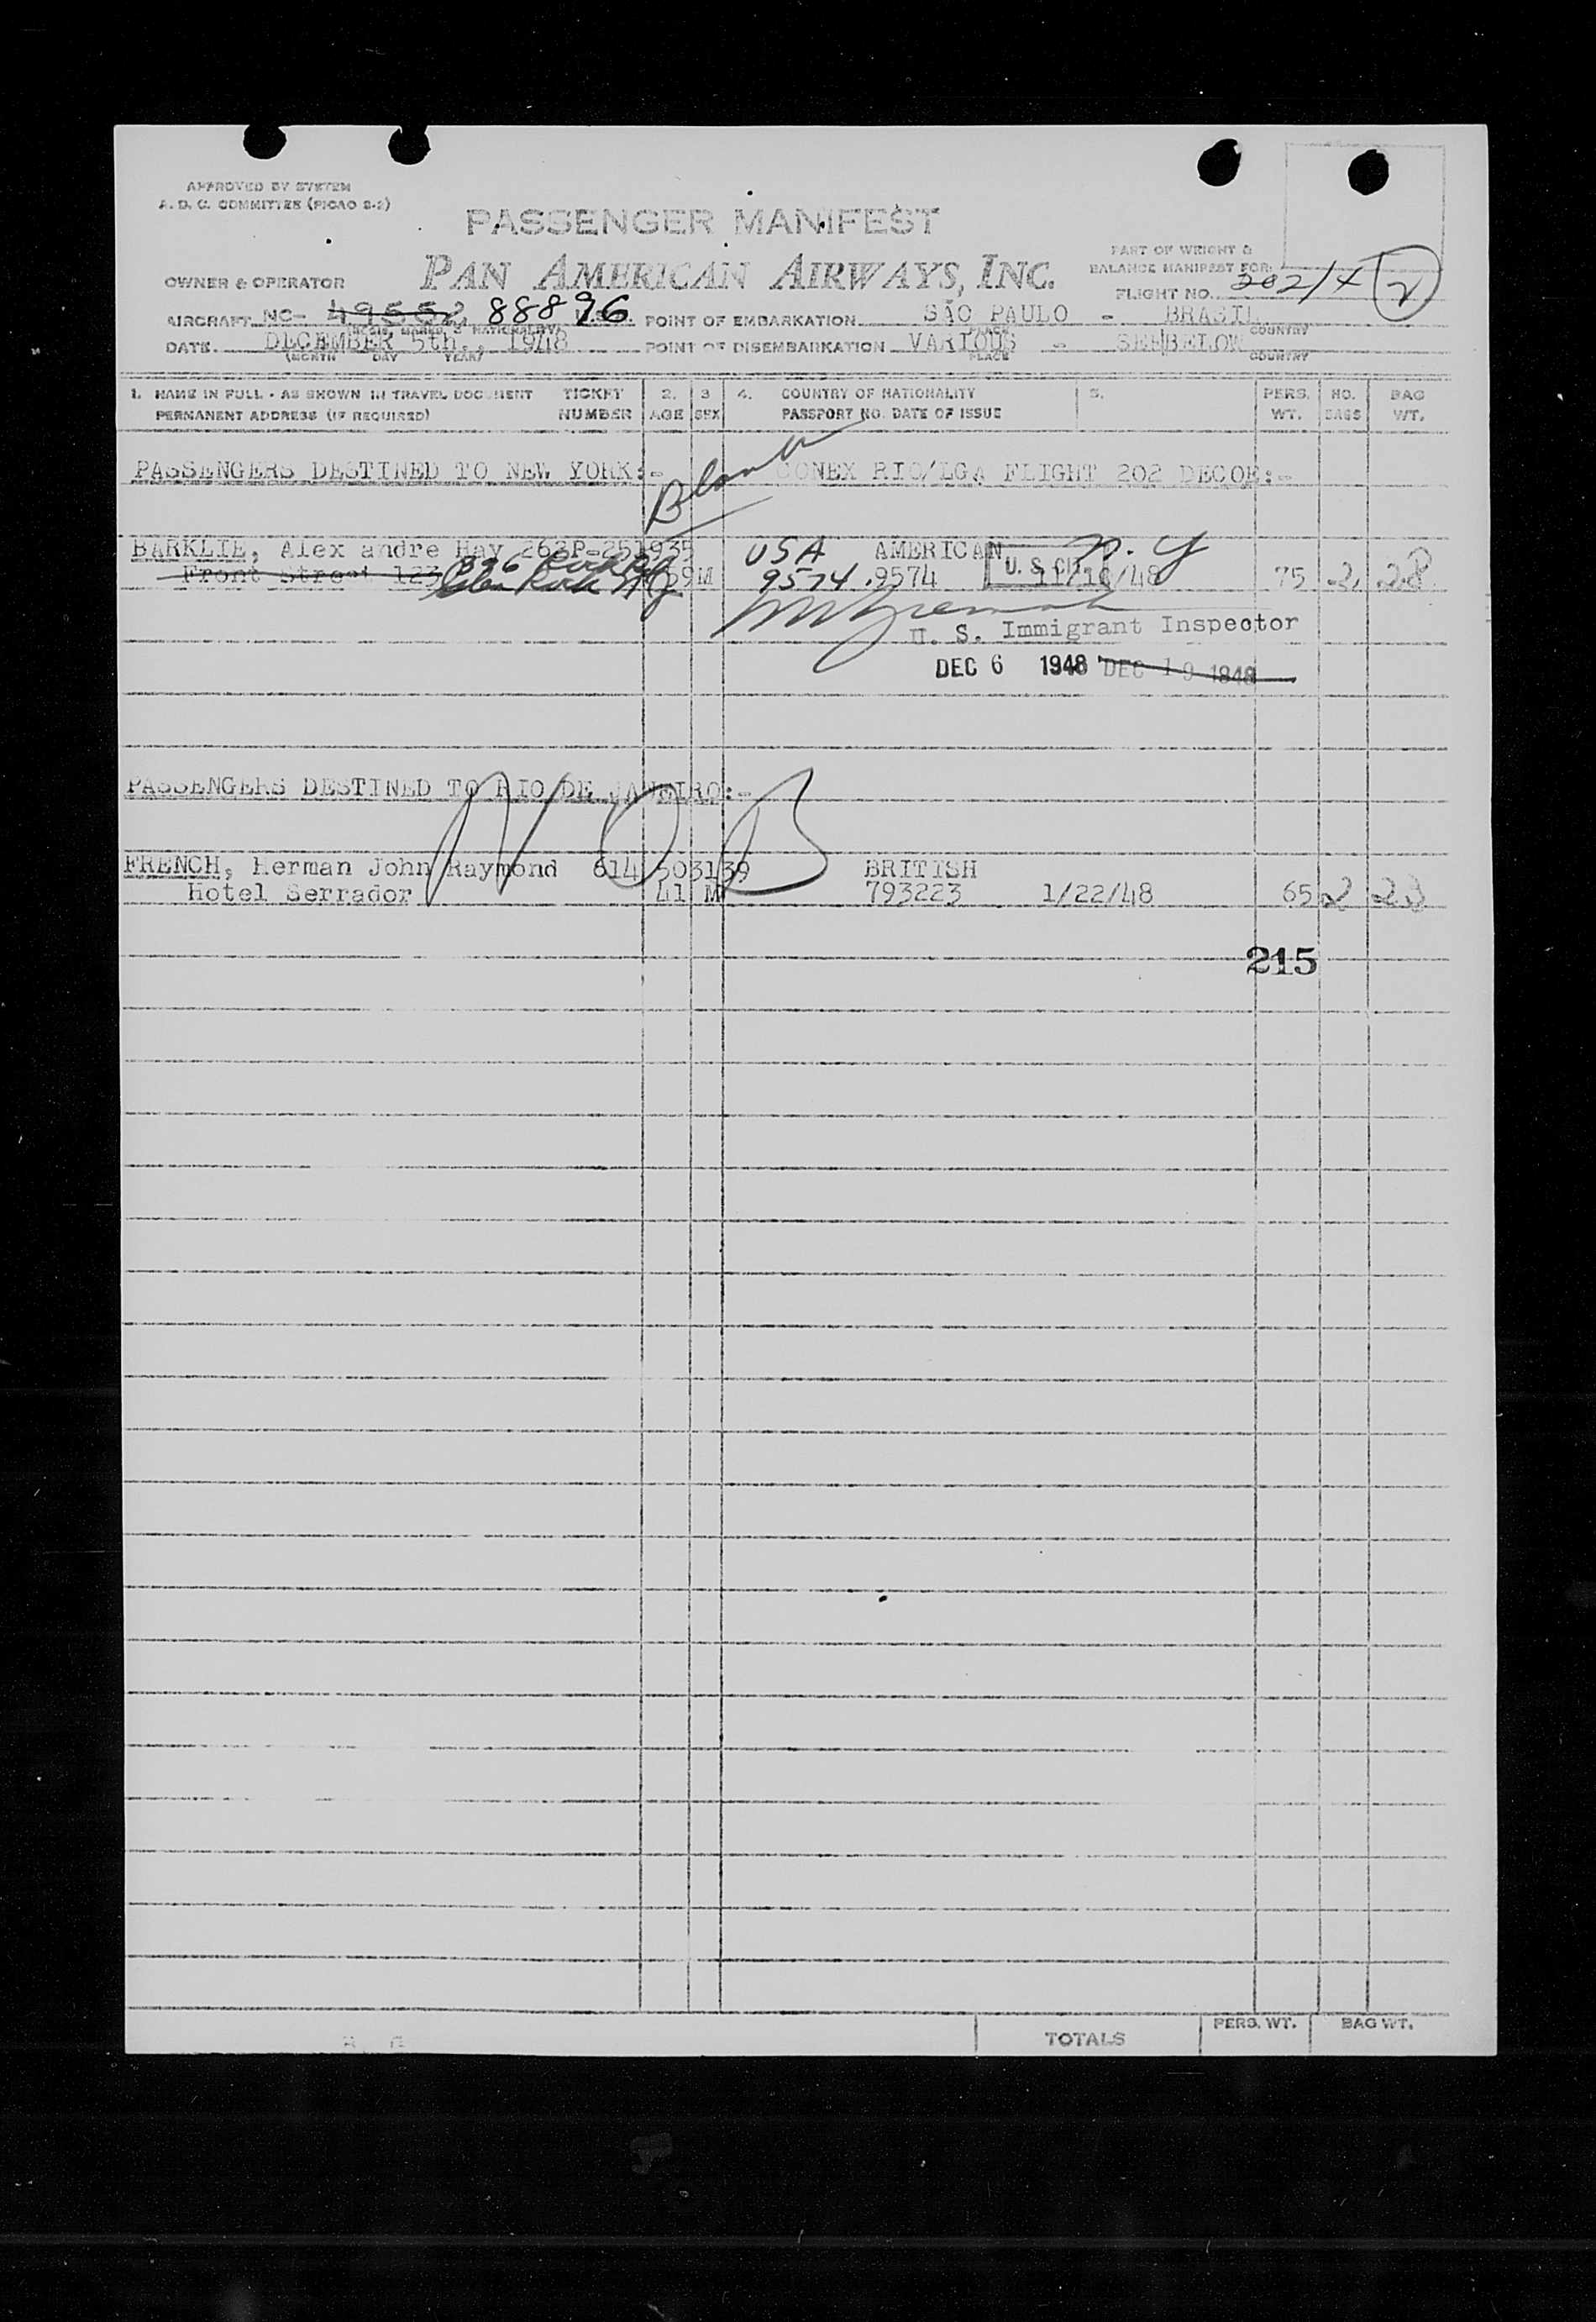 APPROVED BY SYSTEM
A. D. C. COMMITTEE (PICAO 8-2)
PASSENGER MANIFEST
PAN AMERICAN AIRWAYS, INC.
PART OF WEIGHT &
BALANCE MANIFEST FOR:
OWNER & OPERATOR
FLIGHT NO. 202/4 2
AIRCRAFT NC- 49552 88896 POINT OF EMBARKATION SÃO PAULO - BRASIL
PLACE COUNTRY
DATE DECEMBER 5th., 1948 POINT OF DISEMBARKATION VARIOUS - SEE BELOW
(MONTH DAY YEAR) PLACE COUNTRY
1. NAME IN FULL - AS SHOWN IN TRAVEL DOCUMENT TICKET 2. 3 4. COUNTRY OF NATIONALITY 5. PERS. NO. BAG
PERMANENT ADDRESS (IF REQUIRED) NUMBER AGE SEX PASSPORT NO. DATE OF ISSUE WT. BAGS WT.
PASSENGERS DESTINED TO NEW YORK:- CONEX RIO/LGA FLIGHT 202 DECOE:-
BARKLIE, Alex andre Hay 262P-251935 USA AMERICAN N.Y
Front Street 123 896 Rock Rd 59 M 9574 .9574 U. S. CIT. 11/16/48 75 2 28
Glen Rock NJ
U. S. Immigrant Inspector
DEC 6 1948 DEC 19 1948
PASSENGERS DESTINED TO RIO DE JANEIRO:-
NOB
FRENCH, Herman John Raymond 614 503139 BRITISH
Hotel Serrador 41 M 793223 1/22/48 65 2 23
215
TOTALS PERS. WT. BAG WT.